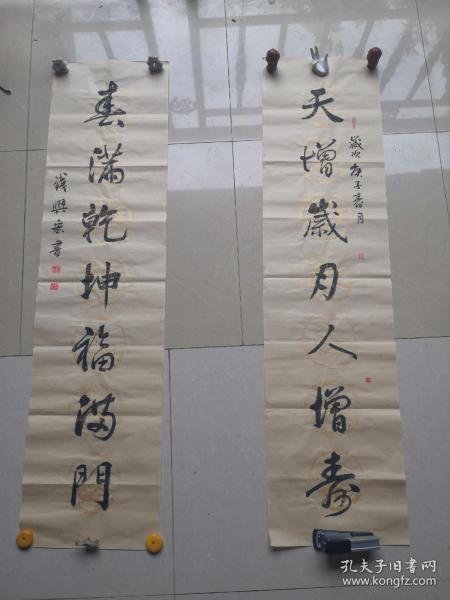 天增歲月人增寿
歲次庚子春月
春滿乾坤福滿門
興雲書
孔夫子旧书网
www.kongfz.com